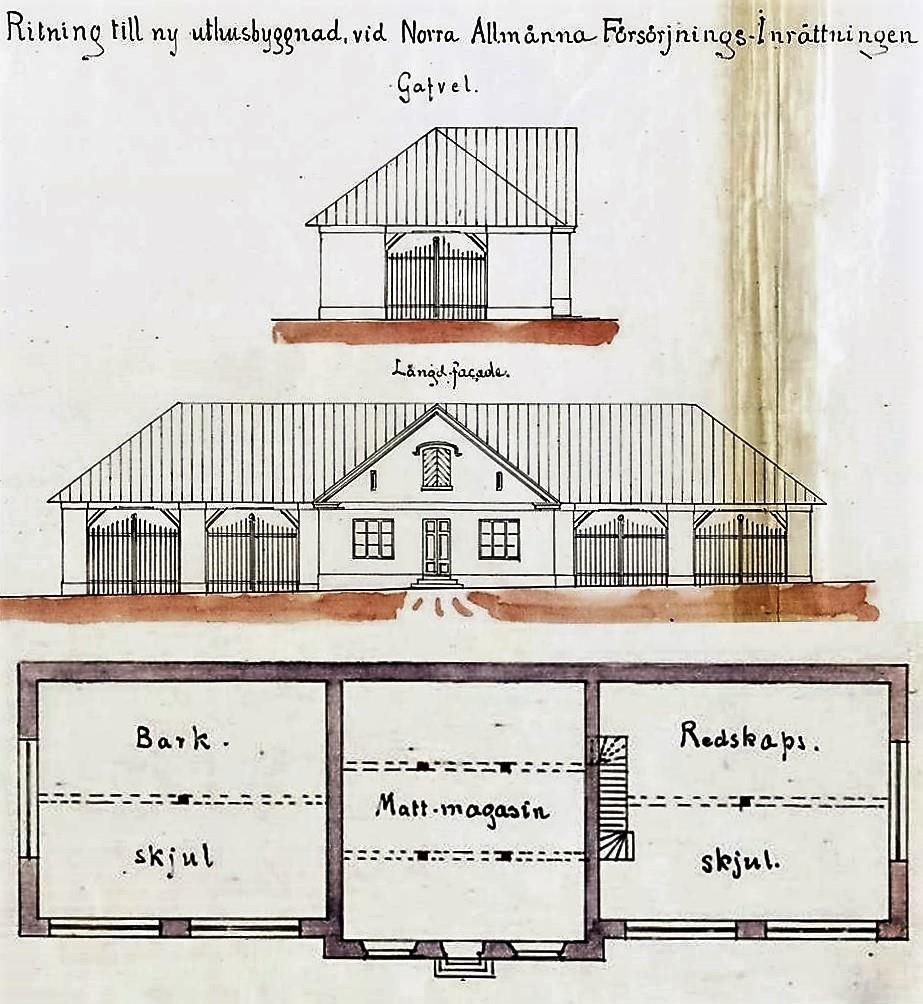 Ritning till ny uthusbyggnad, vid Norra Allmånna Försörjnings-Inrättningen
Gafvel.
Långd-façade.
Bark.
Redskaps.
Matt-magasin
skjul
skjul.